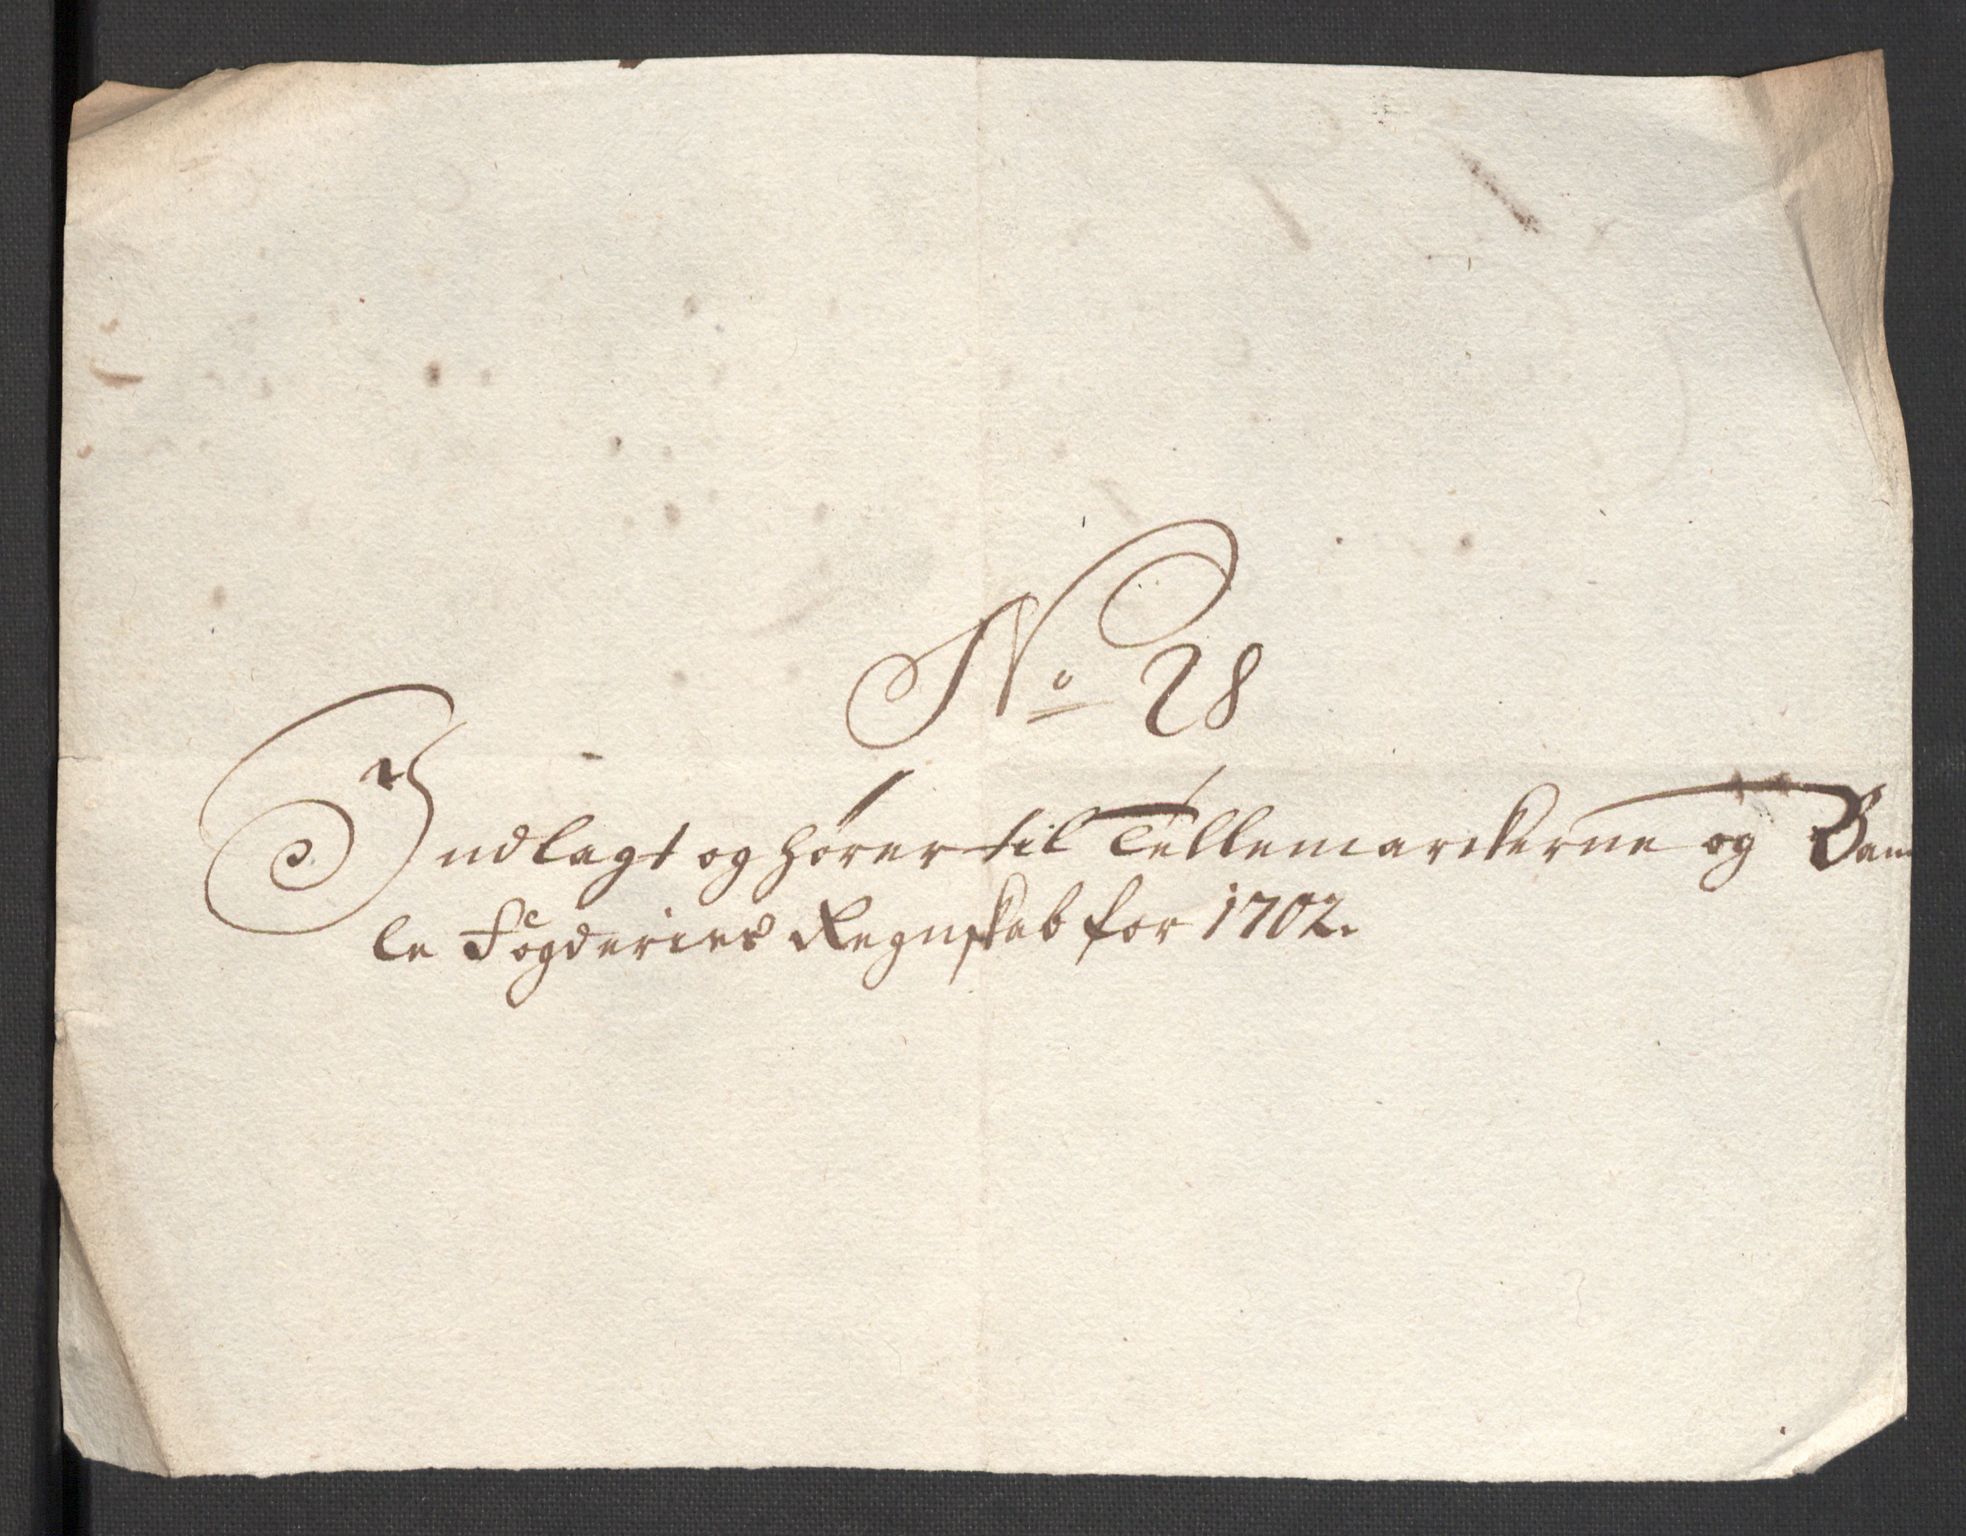 No 28
Indlagt og hører til Tellemarckerne og Bam
le Fogderies Regnskab for 1702.